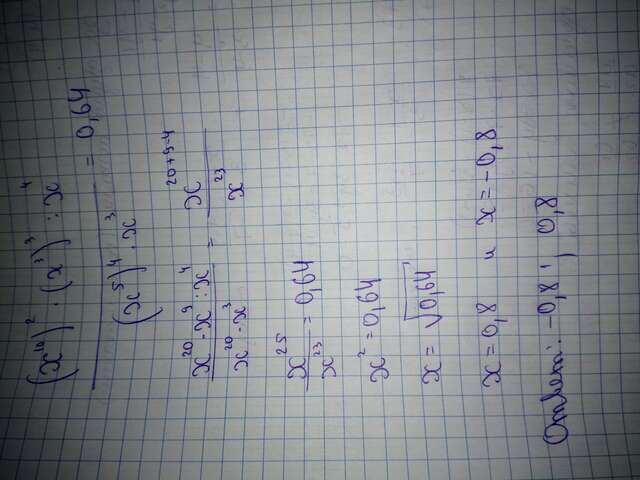 (x¹⁰)² · (x³)³ : x⁴ / (x⁵)⁴ · x³ = 0,64
x²⁰ · x⁹ : x⁴ / x²⁰ · x³ = x²⁰⁺⁹⁻⁴ / x²³
x²⁵ / x²³ = 0,64
x² = 0,64
x = √0,64
x = 0,8 и x = -0,8
Ответ: -0,8 ; 0,8